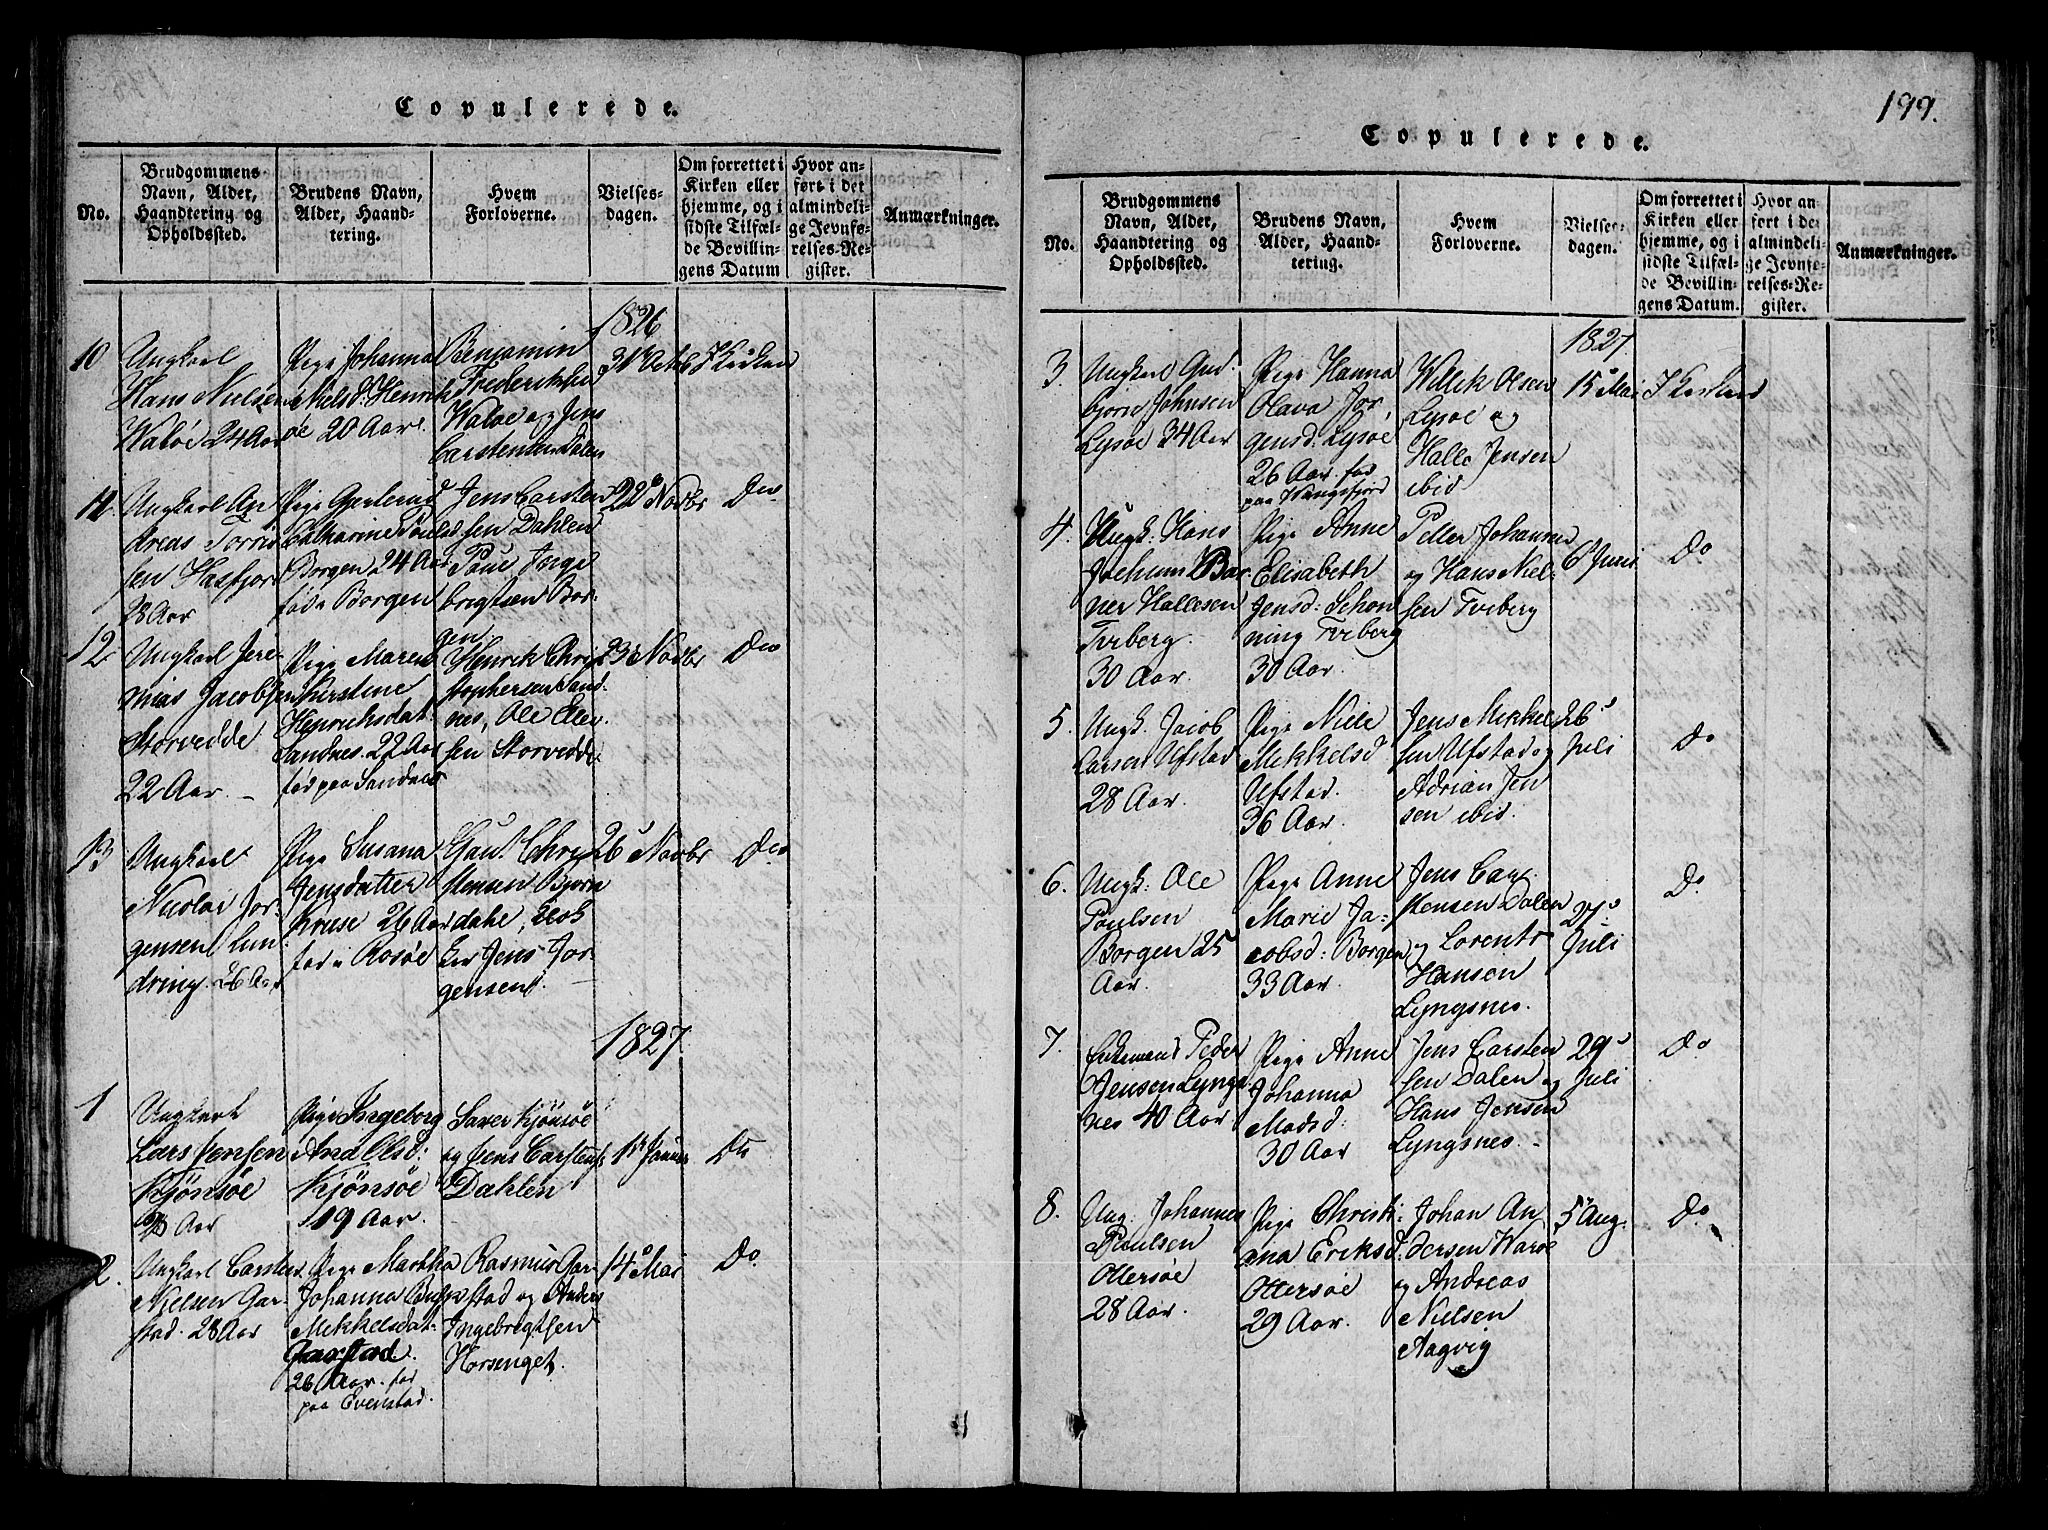 199.
Copulerede.
No.
Brudgommens
Navn, Alder,
Haandtering og
Opholdssted.
Brudens Navn,
Alder, Haand-
tering.
Hvem
Forloverne.
Vielses-
dagen.
Om forrettet i
Kirken eller
hjemme, og i
sidste Tilfæl-
de Bevillin-
gens Datum
Hvor an-
ført i det
almindeli-
ge Jevnfø-
relses-Re-
gister.
Anmærkninger.
1826
10
Ungkarl
Hans Nielsen
Waløe 24 Aar
Pige Johanna
Nielsd: Henrik
oe 20 Aar.
Benjamin
Frederiksen
Waløe og Jens
Carstensen Dalen
31 Octb
I Kirken
11.
Ungkarl An
dreas Torris
sen Hasfjor
28 Aar
Pige Gjertrud
Catharine Pouls
Borgen 24 Aar
fød i Borgen
Jens Carsten
sen Dahlen
Paul Inge
brigtsen Bor-
gen
22 Novbr
Do
12
Ungkarl Jere-
mias Jacobsen
Storvedde
22 Aar. –
Pige Maren
Kirstine
Henrichsdat
Sandnes 22 Aar
fød paa Sandnes
Henrik Chri
stophersen Sand-
nes, Ole Elev
sen Storvedde
23 Novbr
Do
13
Ungkarl
Nicolai Jør-
gensen Lun-
dring. 26 Aar
Pige Susana
Jensdatter
Kruse 26 Aar
fød i Rosøe
Gaut Chri
stensen Bjørn
dahl, Klok
ker Jens Jør-
gensen.
26 Novbr
Do
1827.
1
Ungkarl
Lars Jensen
Kjønsøe
Aar
Pige Ingeborg
Andersd:
Kjønsøe
19 Aar.
Saxer Kjønsøe
og Jens Carstens
Dahlen
1 Januar
Do
2.
Ungkarl Carsten
Nielsen Gar-
stad. 28 Aar
Pige Martha
Johanna
Mikkelsdat
Garstad.
26 Aar. fød
paa Evenstad.
Rasmus Gar-
stad og Anders
Ingebregtsen
Horsenget.
14 Mai
Do
Copulerede.
No.
Brudgommens
Navn, Alder,
Haandtering og
Opholdssted.
Brudens Navn,
Alder, Haand-
tering.
Hvem
Forloverne.
Vielses-
dagen.
Om forrettet i
Kirken eller
hjemme, og i
sidste Tilfæl-
de Bevillin-
gens Datum.
Hvor an-
ført i det
almindeli-
ge Jevnfø-
relses-Re-
gister.
Anmærkninger.
1827.
3.
Ungkarl Gud
bjorn Johnsen
Lysøe 34 Aar
Pige Hanna
Olava Jør
gensd: Lysøe
26 Aar fød
paa
Willik Olsen
Lysøe og
Halle Jensen
ibid
15 Mai
I Kirken
4.
Ungk: Hans
Jochum Bar
ner Hallesen
Tviberg.
30 Aar.
Pige Anne
Elisabeth
Jensd: Schøn
ning Tviberg
30 Aar.
Petter Johannes
og Hans Niel-
sen Tviberg
6 Juni.
Do
5.
Ungk. Jacob
Larsen Ufstad
28 Aar.
Pige Nille
Mikkelsd
Ufstad.
36 Aar.
Jens Mikkel
sen Ufstad og
Adrian Jen
sen ibid.
26
Juli
Do
6.
Ungk: Ole
Paulsen
Borgen 25
Aar.
Pige Anne
Marie Ja-
cobsd: Borgen
33 Aar.
Jens Car
stensen Dalen
og Lorents
Hansen
Lyngsnes.
27
Juli
Do
7.
Enkemand Peder
Jensen Lyngs
nes 40 Aar.
Pige Anne
Johanna
Madsd:
30 Aar
Jens Carsten
sen Dalen og
Hans Jensen
Lyngsnes. –
29
Juli
Do
8.
Ung. Johannes
Paulsen
Ottersøe
28 Aar.
Pige Christi-
ana Eriksd.
Ottersøe
29 Aar.
Johan An
dersen Warøe
og Andreas
Nielsen
Aagvig
5 Aug.
Do